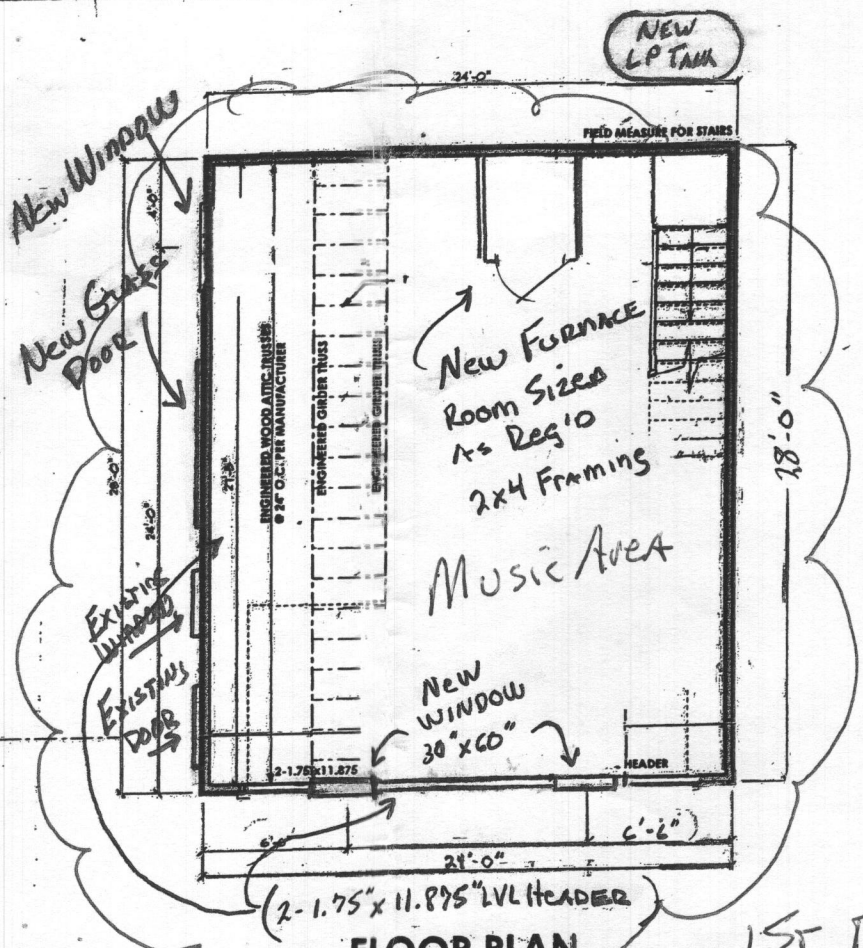 NEW
LP TANK
24'-0"
FIELD MEASURE FOR STAIRS
New Window
4'-0"
New Glass
Door
ENGINEERED WOOD ATTIC TRUSSES
@ 24" O.C. PER MANUFACTURER
ENGINEERED GIRDER TRUSS
ENGINEERED GIRDER TRUSS
New Furnace
Room Sized
As Req'd
2x4 Framing
28'-0"
28'-0"
24'-0"
Music Area
Existing
Window
Existing
Door
New
Window
30"x60"
2-1.75x11.875
HEADER
6'-6"
24'-0"
(2-1.75"x11.875" LVL Header)
FLOOR PLAN
1st